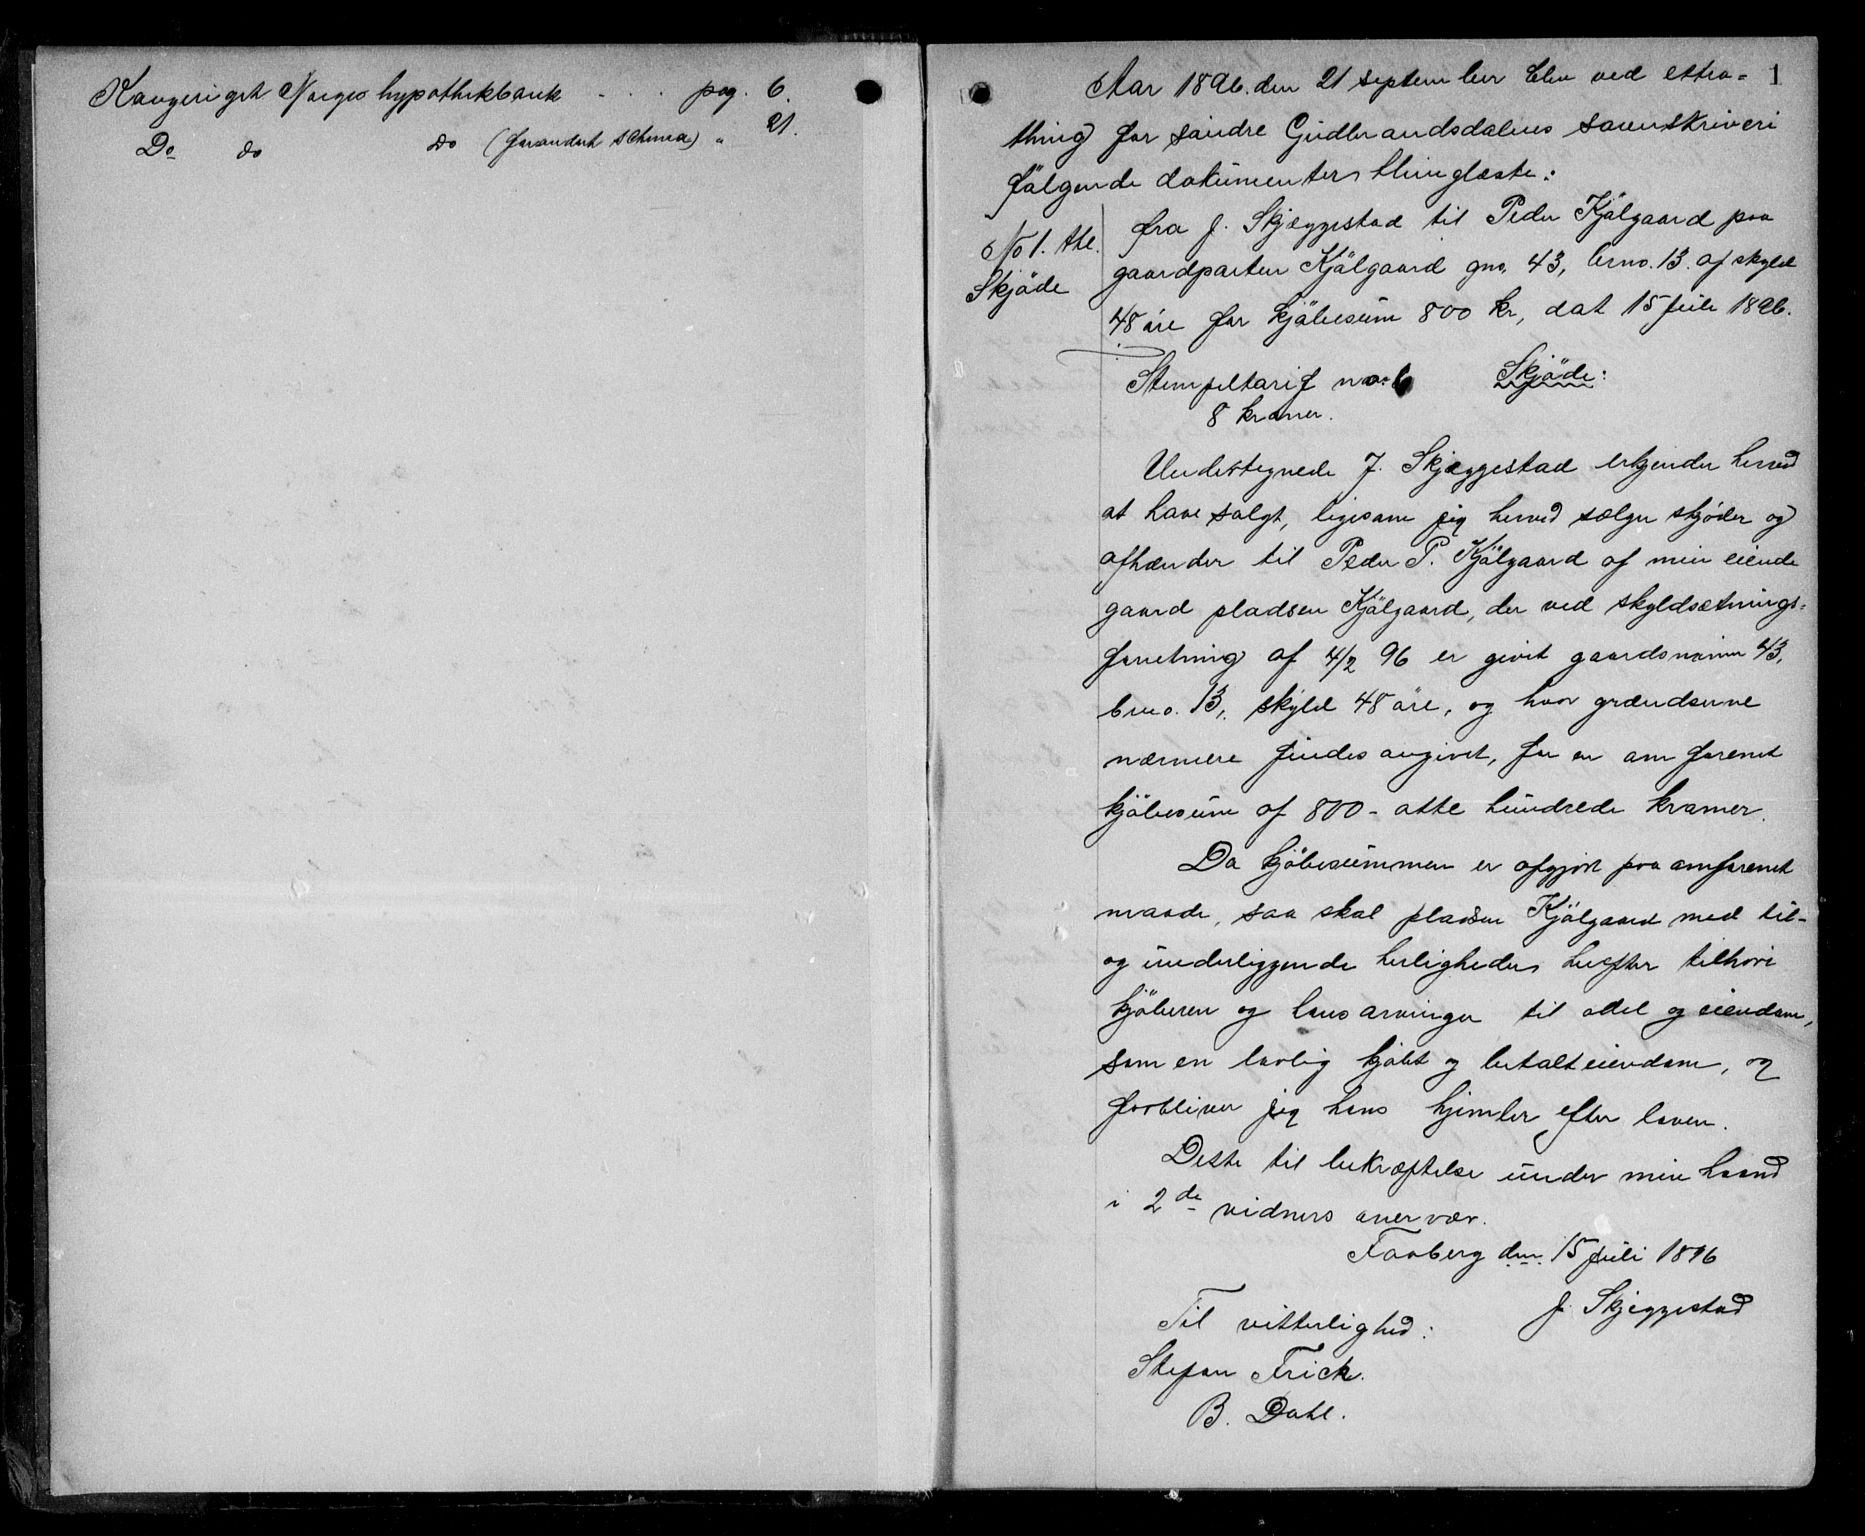 Kongeriget Norges hypothekbank . . . pag. 6.
Do do do (forandret schema) " 21.
1
Aar 1896 den 21 september blev ved extra-
thing for söndre Gudbrandsdalens sorenskriveri
fölgende dokumenter thinglæste:
No 1. thl.
Skjöde
fra J. Skjæggestad til Peder Kjölgaard paa
gaardparten Kjölgaard gno. 43, brno. 13. af skyld
48 öre for kjöbesum 800 kr, dat 15 juli 1896.
Stempeltarif no. 6 Skjöde:
8 kroner.
Undertegnede J. Skjæggestad erkjender herved
at have solgt, ligesom jeg herved sælger skjöder og
afhænder til Peder P. Kjölgaard af min eiende
gaard pladsen Kjölgaard, der ved skyldsætnings-
forretning af 4/2 96 er givet gaardsnumer 43,
bno. 13, skyld 48 öre, og hvor grændserne
nærmere findes angivet, for en omforenet
kjöbesum af 800 - otte hundrede kroner.
Da kjöbesummen er afgjort paa omforenet
maade, saa skal pladsen Kjölgaard med til-
og underliggende herligheder herefter tilhöre
kjöberen og hans arvinger til odel og eiendom,
som en lovlig kjöbt og betalt eiendom, og
forbliver jeg hans hjemler efter loven.
Dette til bekræftelse under min haand
i 2de vidners overvær.
Faaberg den 15 juli 1896
J. Skjeggestad
Til vitterlighed:
Stefan Frick.
B. Dahl.